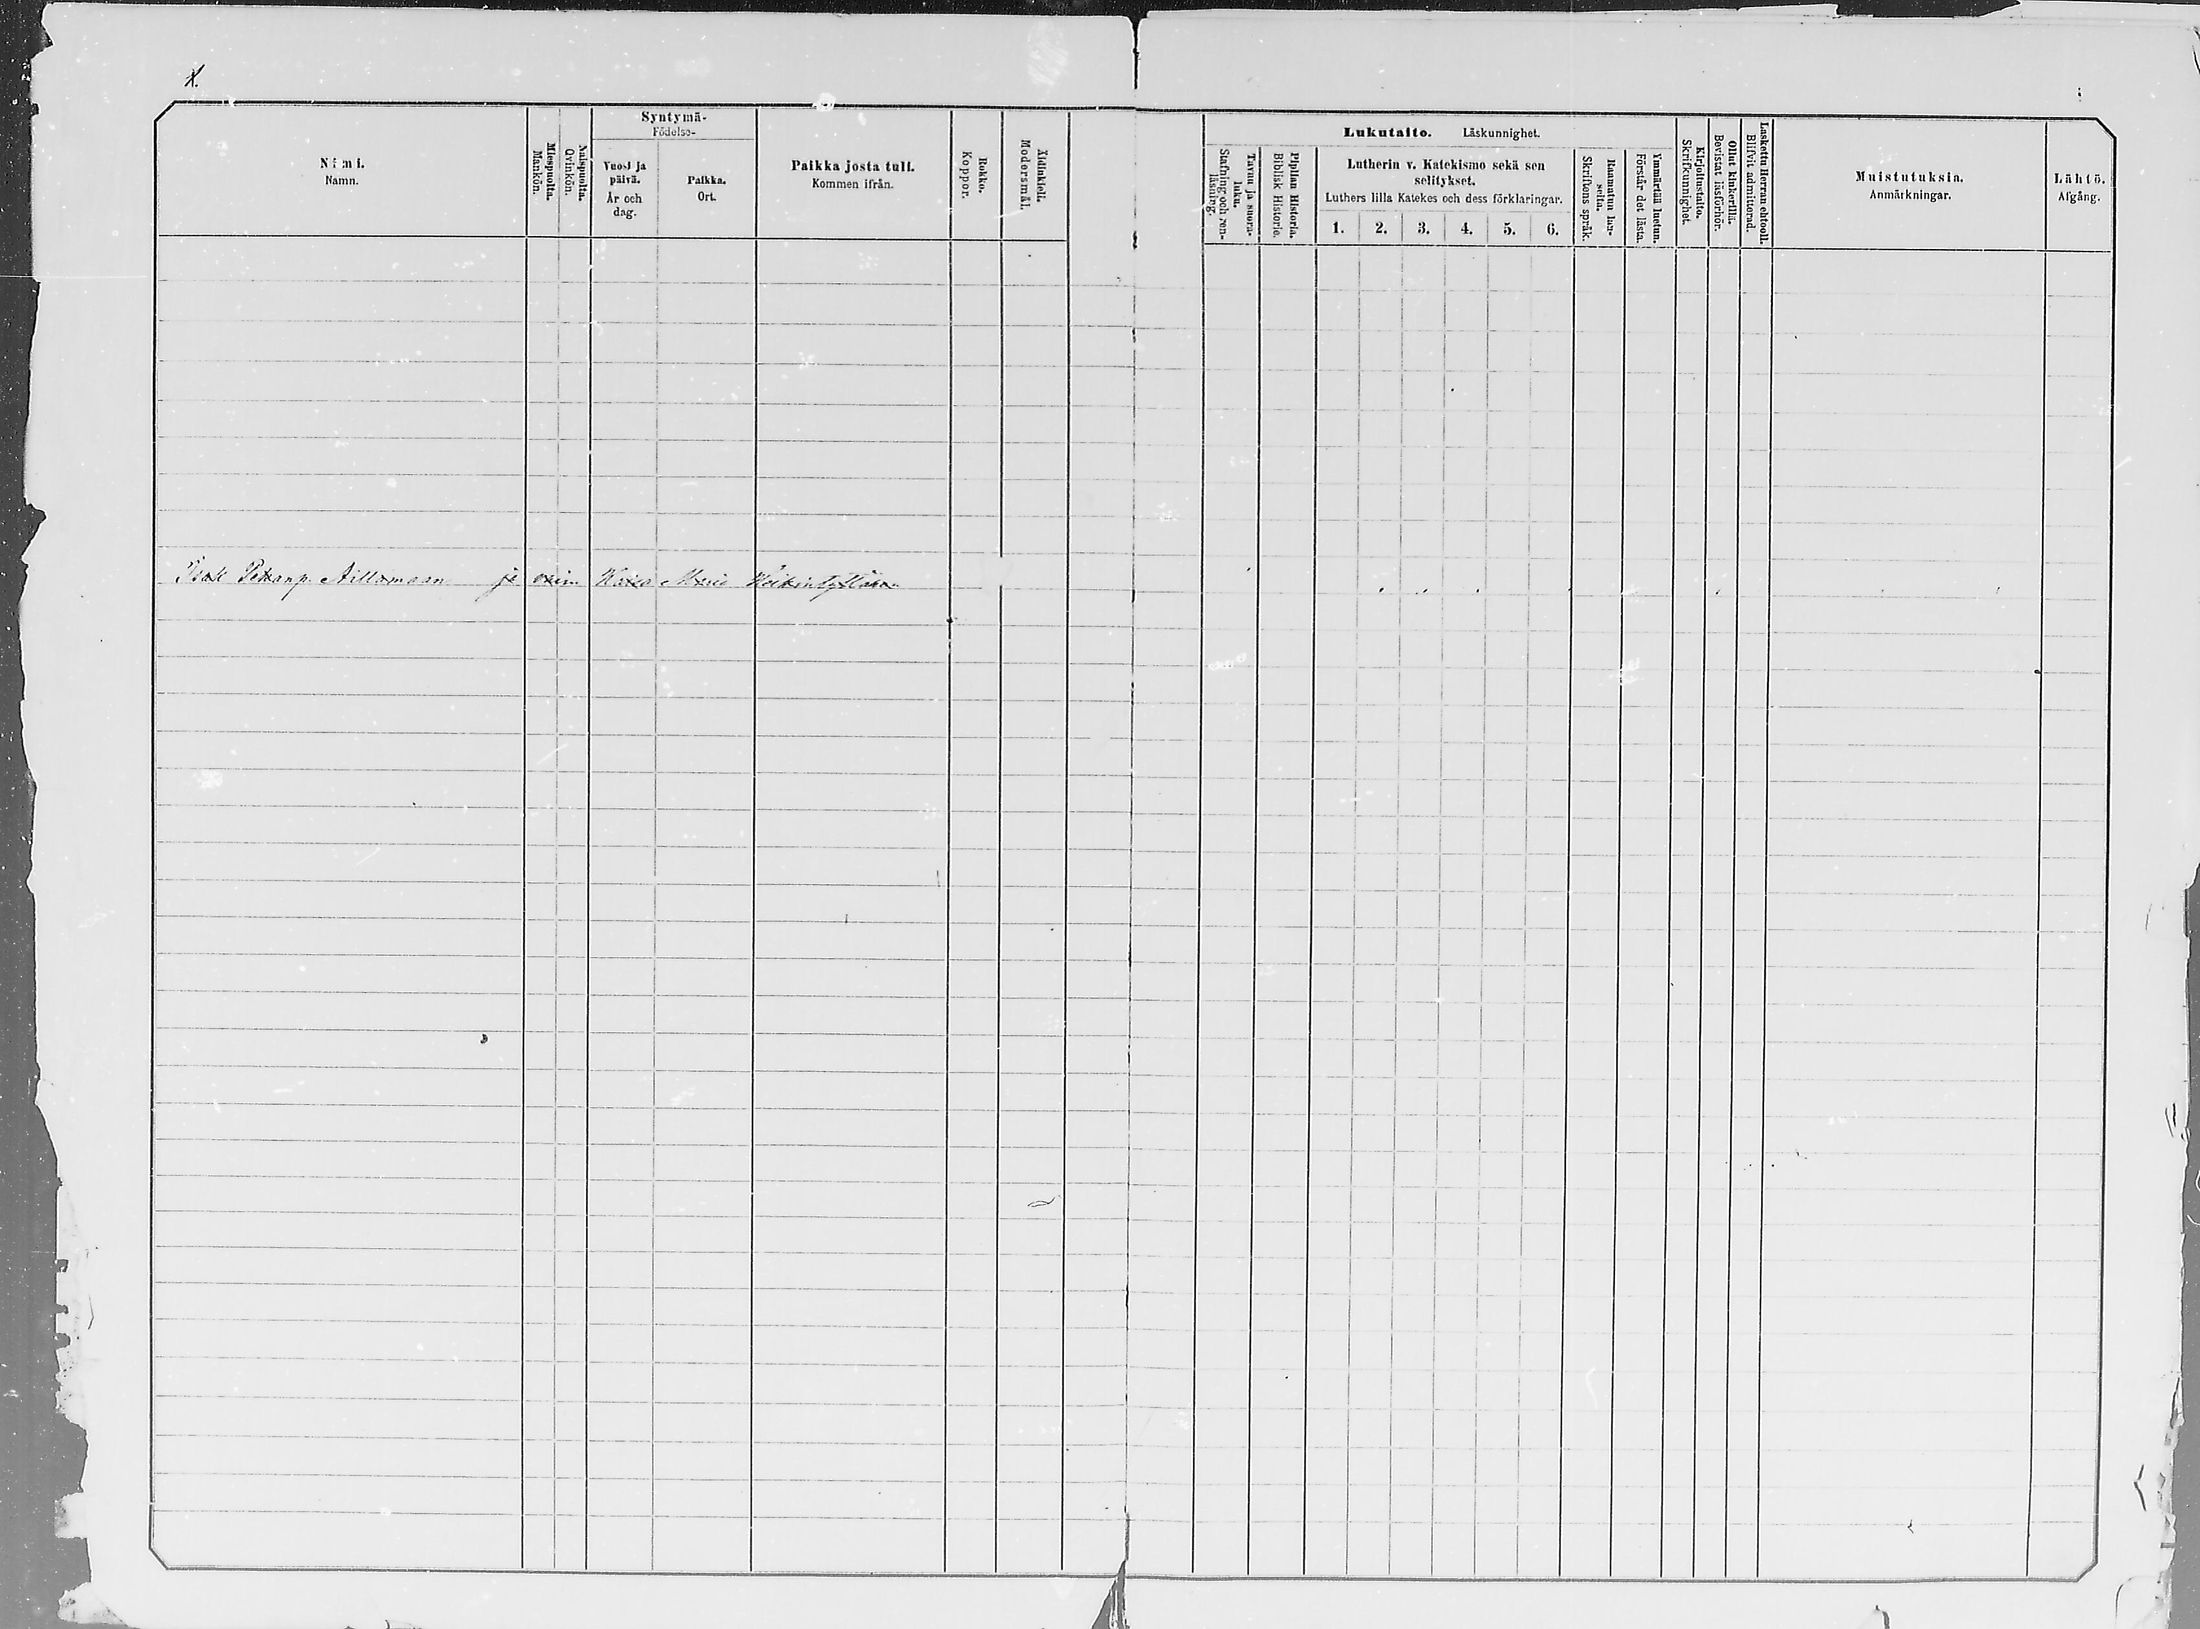 1.
Nimi.
Namn.
Miespuolta.
Mankön.
Naispuolta.
Qvinkön.
Syntymä-
Födelse-
Vuosi ja
päivä.
År och
dag.
Paikka.
Ort.
Paikka josta tuli.
Kommen ifrån.
Rokko.
Koppor.
Äidinkieli.
Modersmål.
Lukutaito. Läskunnighet.
Tavuu ja suora-
luku.
Stafning och ren-
läsning.
Piplian Historia.
Biblisk Historie.
Lutherin v. Katekismo sekä sen
selitykset.
Luthers lilla Katekes och dess förklaringar.
1. 2. 3. 4. 5. 6.
Raamatun lau-
seita.
Skriftens språk.
Ymmärtää luetun.
Förstår det lästa.
Kirjoitustaito.
Skrifkunnighet.
Ollut kinkerillä.
Bevistat läsförhör.
Laskettu Herran ehtooll.
Blifvit admitterad.
Muistutuksia.
Anmärkningar.
Lähtö.
Afgång.
Isak Petranp. Aillomaan ja Maria Heikintyttären